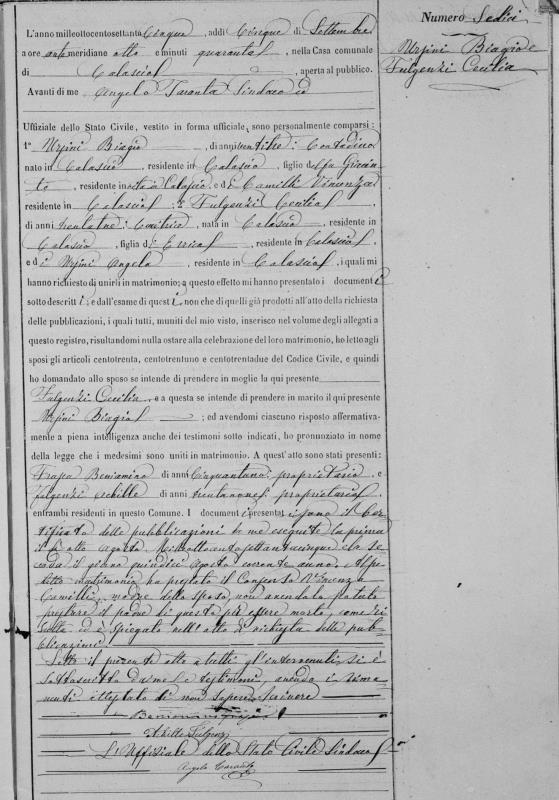 Numero Sedici
Ursini Biagio e
Fulgenzi Cecilia
L'anno milleottocentosettanta Cinque, addì Cinque di Settembre
a ore antemeridiane otto e minuti quaranta, nella Casa comunale
di Calascio, aperta al pubblico.
Avanti di me Angelo Taranta Sindaco ed
Uffiziale dello Stato Civile, vestito in forma ufficiale, sono personalmente comparsi:
1° Ursini Biagio, di anni ventitre: Contadino
nato in Calascio, residente in Calascio, figlio del fu Giacin-
to, residente in vita a Calascio, e di Camilli Vincenza
residente in Calascio; 2° Fulgenzi Cecilia,
di anni trentatre: Cucitrice, nata in Calascio, residente in
Calascio, figlia di Errico, residente in Calascio,
e di Ursini Angela, residente in Calascio, i quali mi
hanno richiesto di unirli in matrimonio; a questo effetto mi hanno presentato i documenti
sotto descritti; e dall'esame di questi, non che di quelli già prodotti all'atto della richiesta
delle pubblicazioni, i quali tutti, muniti del mio visto, inserisco nel volume degli allegati a
questo registro, risultandomi nulla ostare alla celebrazione del loro matrimonio, ho letto agli
sposi gli articoli centotrenta, centotrentuno e centotrentadue del Codice Civile, e quindi
ho domandato allo sposo se intende di prendere in moglie la qui presente
Fulgenzi Cecilia, e a questa se intende di prendere in marito il qui presente
Ursini Biagio; ed avendomi ciascuno risposto affermativa-
mente a piena intelligenza anche dei testimoni sotto indicati, ho pronunziato in nome
della legge che i medesimi sono uniti in matrimonio. A quest'atto sono stati presenti:
Frasa Beniamino di anni Cinquantuno: proprietario e
Fulgenzi Achille di anni trentanove: proprietario,
entrambi residenti in questo Comune. I documenti presentati sono il Cer-
tificato delle pubblicazioni da me eseguite la prima
il dì otto agosto Milleottocentosettantacinque e la se-
conda il giorno quindici agosto corrente anno. Al pe
detto matrimonio ha prestato il Consenso Vincenza
Camilli, madre dello sposo, non avendolo potuto
prestare il padre di questo per essere morto, come ri
sulta ed è spiegato nell'atto di richiesta delle pub-
blicazioni.
Letto il presente atto a tutti gl'intervenuti, si è
sottoscritto da me e testimoni, avendo i rima
nenti attestato di non sapere scrivere
Beniamino Frasa
Achille Fulgenzi
L'Uffiziale dello Stato Civile Sindaco
Angelo Taranta